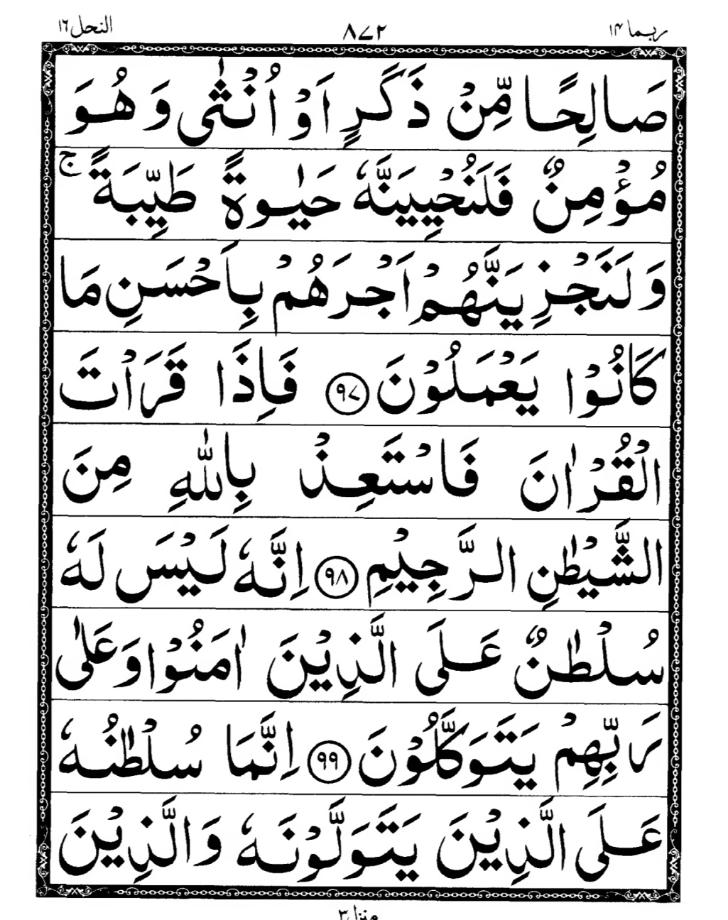 ربما ۱۴ ۸۷۲ النحل ۱۶
صَالِحًا مِّنْ ذَكَرٍ اَوْ اُنْثٰى وَهُوَ
مُؤْمِنٌ فَلَنُحْيِيَنَّهٗ حَيٰوةً طَيِّبَةً ۚ
وَلَنَجْزِيَنَّهُمْ اَجْرَهُمْ بِاَحْسَنِ مَا
كَانُوْا يَعْمَلُوْنَ ﴿۹۷﴾ فَاِذَا قَرَاْتَ
الْقُرْاٰنَ فَاسْتَعِذْ بِاللّٰهِ مِنَ
الشَّيْطٰنِ الرَّجِيْمِ ﴿۹۸﴾ اِنَّهٗ لَيْسَ لَهٗ
سُلْطٰنٌ عَلَى الَّذِيْنَ اٰمَنُوْا وَعَلٰى
رَبِّهِمْ يَتَوَكَّلُوْنَ ﴿۹۹﴾ اِنَّمَا سُلْطٰنُهٗ
عَلَى الَّذِيْنَ يَتَوَلَّوْنَهٗ وَالَّذِيْنَ
منزل ۳